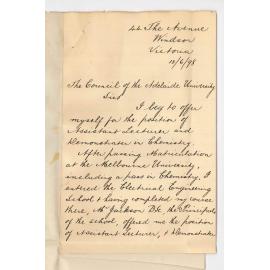 44 The Avenue
Windsor
Victoria
10/6/98
The Council of the Adelaide University
Sirs
I beg to offer
myself for the position of
Assistant Lecturer and
Demonstrator in Chemistry.
After passing Matriculation
at the Melbourne University,
including a pass in Chemistry, I
entered the Electrical Engineering
School & having completed my course
there, Mr Jackson BSc the Principal
of the school, offered me the position
of Assistant Lecturer, & Demonstrator